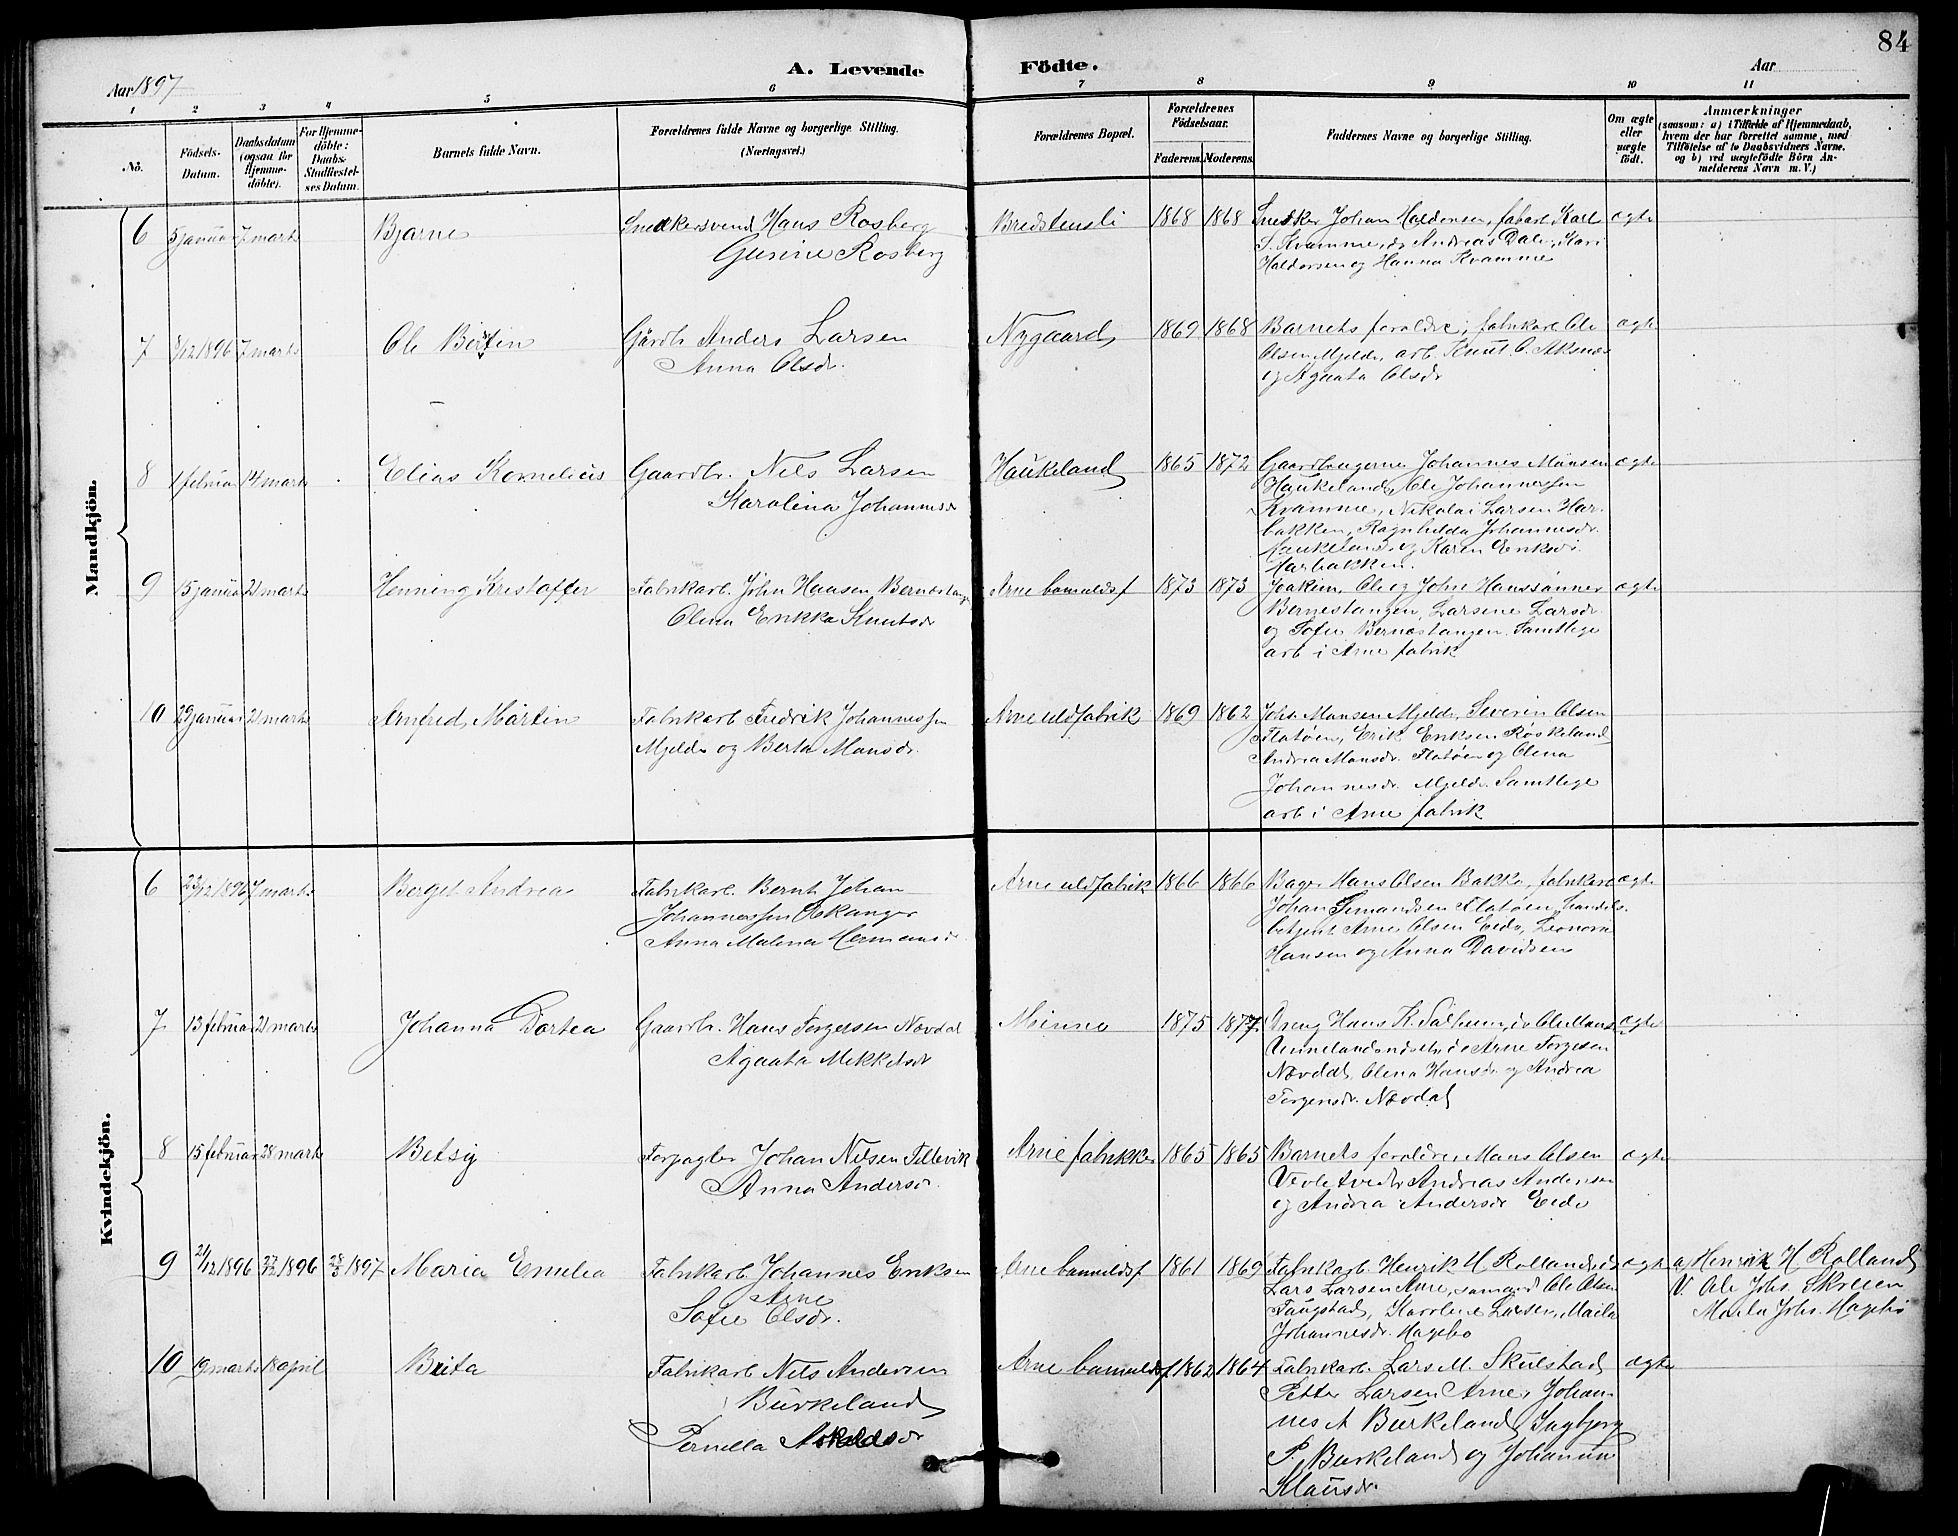 84
A. Levende Födte.
Aar 1897
Aar
1 2 3 4 5 6 7 8 9 10 11
No.
Födsels-Datum.
Daabsdatum (ogsaa for Hjemmedöbte).
For Hjemmedöbte: Daabs-Stadfæstelses Datum.
Barnets fulde Navn.
Forældrenes fulde Navne og borgerlige Stilling.
(Næringsvei.)
Forældrenes Bopæl.
Forældrenes Födselsaar.
Faderens. Moderens.
Faddernes Navne og borgerlige Stilling.
Om ægte eller uægte födt.
Anmærkninger
(saasom: a) i Tilfælde af Hjemmedaab, hvem der har forrettet samme, med Tilföielse af to Daabsvidners Navne, og b) ved uægtefödte Börn Anmelderens Navn m. V.)
Mandkjön.
6 5 januar 7 marts Bjarne Snedkersvend Hans Rosberg
Gurine Rosberg
Bredstensli 1868 1868 Snedker Johan Haldorsen, fabarb Karl
S. Kvamme, do Andreas Dale, Kari
Haldorsen og Hanna Kvamme
ægte
7 8/12 1896 7 marts Ole Bertin Gårdb Anders Larsen
Anna Olsdr.
Nygaard 1869 1868 Barnets foraldre, fabrkarb Ole
Olsen Mjelde, arb. Knut O. Aksnæs
og Agaata Olsdr
ægte
8 1 februar 14 marts Elias Kornelius Gaardbr. Nils Larsen
Karolina Johannesdr
Haukeland 1865 1872 Gaardbrugerne Johannes Månsen
Haukeland, Ole Johannessen
Kvamme, Nikolai Larsen Har-
bakken, Ragnhilda Johannesdr.
Haukeland og Karen Eriksdr.
Harbakken.
ægte
9 15 januar 21 marts Henning Kristoffer Fabrikarb. John Hansen Bernestangen
Olina Erikka Knutsdr
Arne bomuldsf 1873 1873 Joakim, Ole og John Hanssønner
Bernestangen, Larsine Larsdr
og Sofie Bernestangen. Samtlige
arb i Arne fabrik
ægte
10 29 januar 21 marts Arnfred Martin Fabrikarb Fredrik Johannessen
Mjelde og Berta Monsdr.
Arne uldfabrik 1869 1862 Johs Monsen Mjelde, Severin Olsen
Flatøen, Erik Eriksen Røskeland
Andrea Monsdr. Flatøen og Olena
Johannesdr. Mjelde. Samtlige
arb i Arne fabrik
ægte
Kvindekjön.
6 23/12 1896 7 marts Berget Andrea Fabrikarb. Bernt Johan
Johannessen Ekanger
Anna Malena Hermansdr
Arne uldfabrik 1866 1866 Bager Hans Olsen Bakke, fabrikarb
Johan Simondsen Flatøen, handels-
betjent Arne Olsen Eide, Leonora
Hansen og Anna Davidsen
ægte
7 13 februar 21 marts Johanna Dortea Gaardbr. Hans Torgersen Nævdal
Agaata Mikkelsdr
1875 1877 Dreng Hans K. Salhun, do Ole Hans
do Arne Torgersen
Nævdal, Olena Hansdr og Andrea
Torgersdr. Nævdal
ægte
8 15 februar 28 marts Betsy Forpagter Johan Nilsen Tellevik
Anna Andersdr.
Arne fabrikker 1865 1865 Barnets foraldre, Mons Olsen
Andreas Andersen
og Andrea Andersdr Eide
ægte
9 21/12 1896 27/12 1896 28/3 1897 Maria Emelia Fabrikarb. Johannes Eriksen
Arne
Sofie Olsdr.
Arne bomuldsf 1861 1869 Fabrikarb. Henrik H Rolland, do
Lars Larsen Arne, Ole Olsen
Taugstad, Karoline Larsen, Maila
Johannesdr. Hagebø
ægte a, Henrik H Rolland
V. Ole Johs. Skreien
Marta Johs. Hagebø
10 19 marts 18 april Brita Fabrikarb Nils Andersen
Burkeland
Pernella Askeldsdr
Arne bomuldsf 1862 1864 Fabrikarb. Lars M. Skulstad
Petter Larsen Arne, Johan-
nes A Burkeland, Ingbjørg
P. Burkeland og Johanna
Klausdr.
ægte